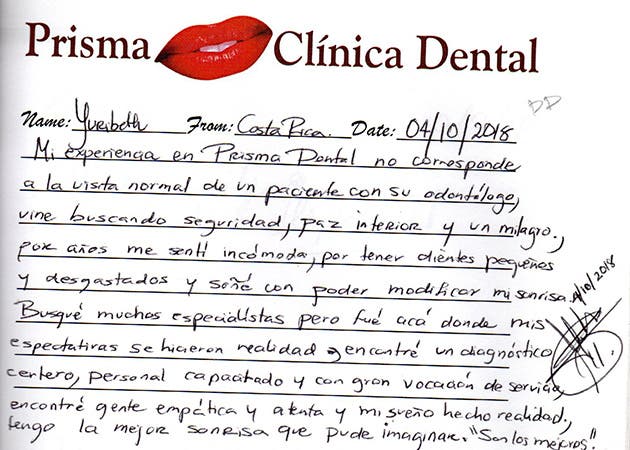 Prisma Clínica Dental
DD
Name: Yuribeth From: Costa Rica. Date: 04/10/2018
Mi experiencia en Prisma Dental no corresponde
a la visita normal de un paciente con su odontólogo,
vine buscando seguridad, paz interior y un milagro.,
por años me sentí incómoda, por tener dientes pequeños
y desgastados y soñé con poder modificar mi sonrisa.
/10/2018
Busqué muchos especialistas pero fué acá donde mis
espectativas se hicieron realidad, encontré un diagnóstico
certero, personal capacitado y con gran vocación de servicio,
encontré gente empática y atenta y mi sueño hecho realidad,
tengo la mejor sonrisa que pude imaginar. "Son los mejores".